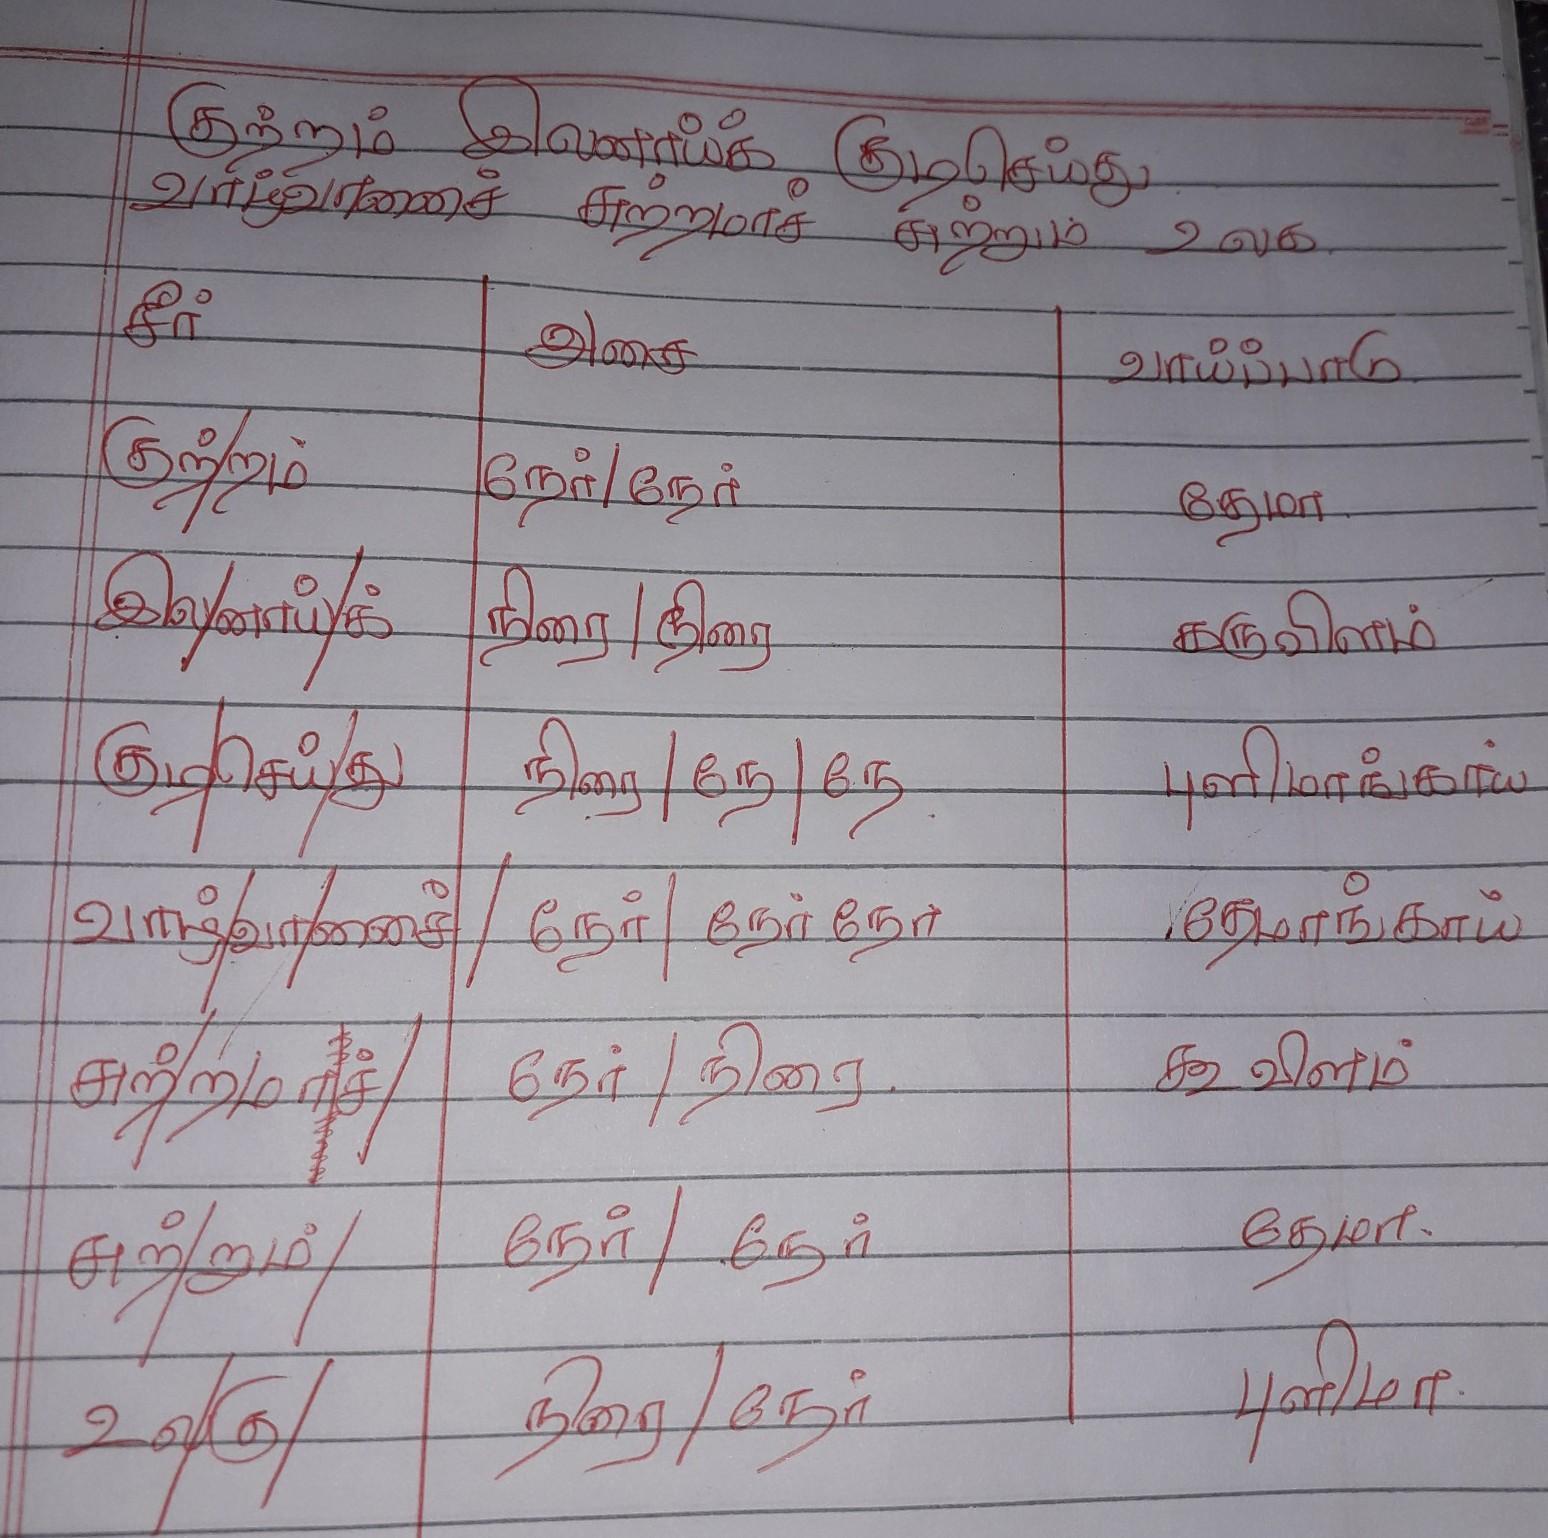 குற்றம் இலனாய்க் குடிசெய்து
வாழ்வானைச் சுற்றமாச் சுற்றும் உலகு
சீர் அசை வாய்ப்பாடு
குற்/றம் நேர்/நேர் தேமா
இல/னாய்/க் நிரை/நிரை கருவிளம்
குடி/செய்/து நிரை/நே/நே புளிமாங்காய்
வாழ்/வா/னைச்/ நேர்/நேர் நேர் தேமாங்காய்
சுற்/ற/மாச்/ நேர்/நிரை. கூவிளம்
சுற்/றும்/ நேர்/நேர் தேமா.
உல/கு/ நிரை/நேர் புளிமா.